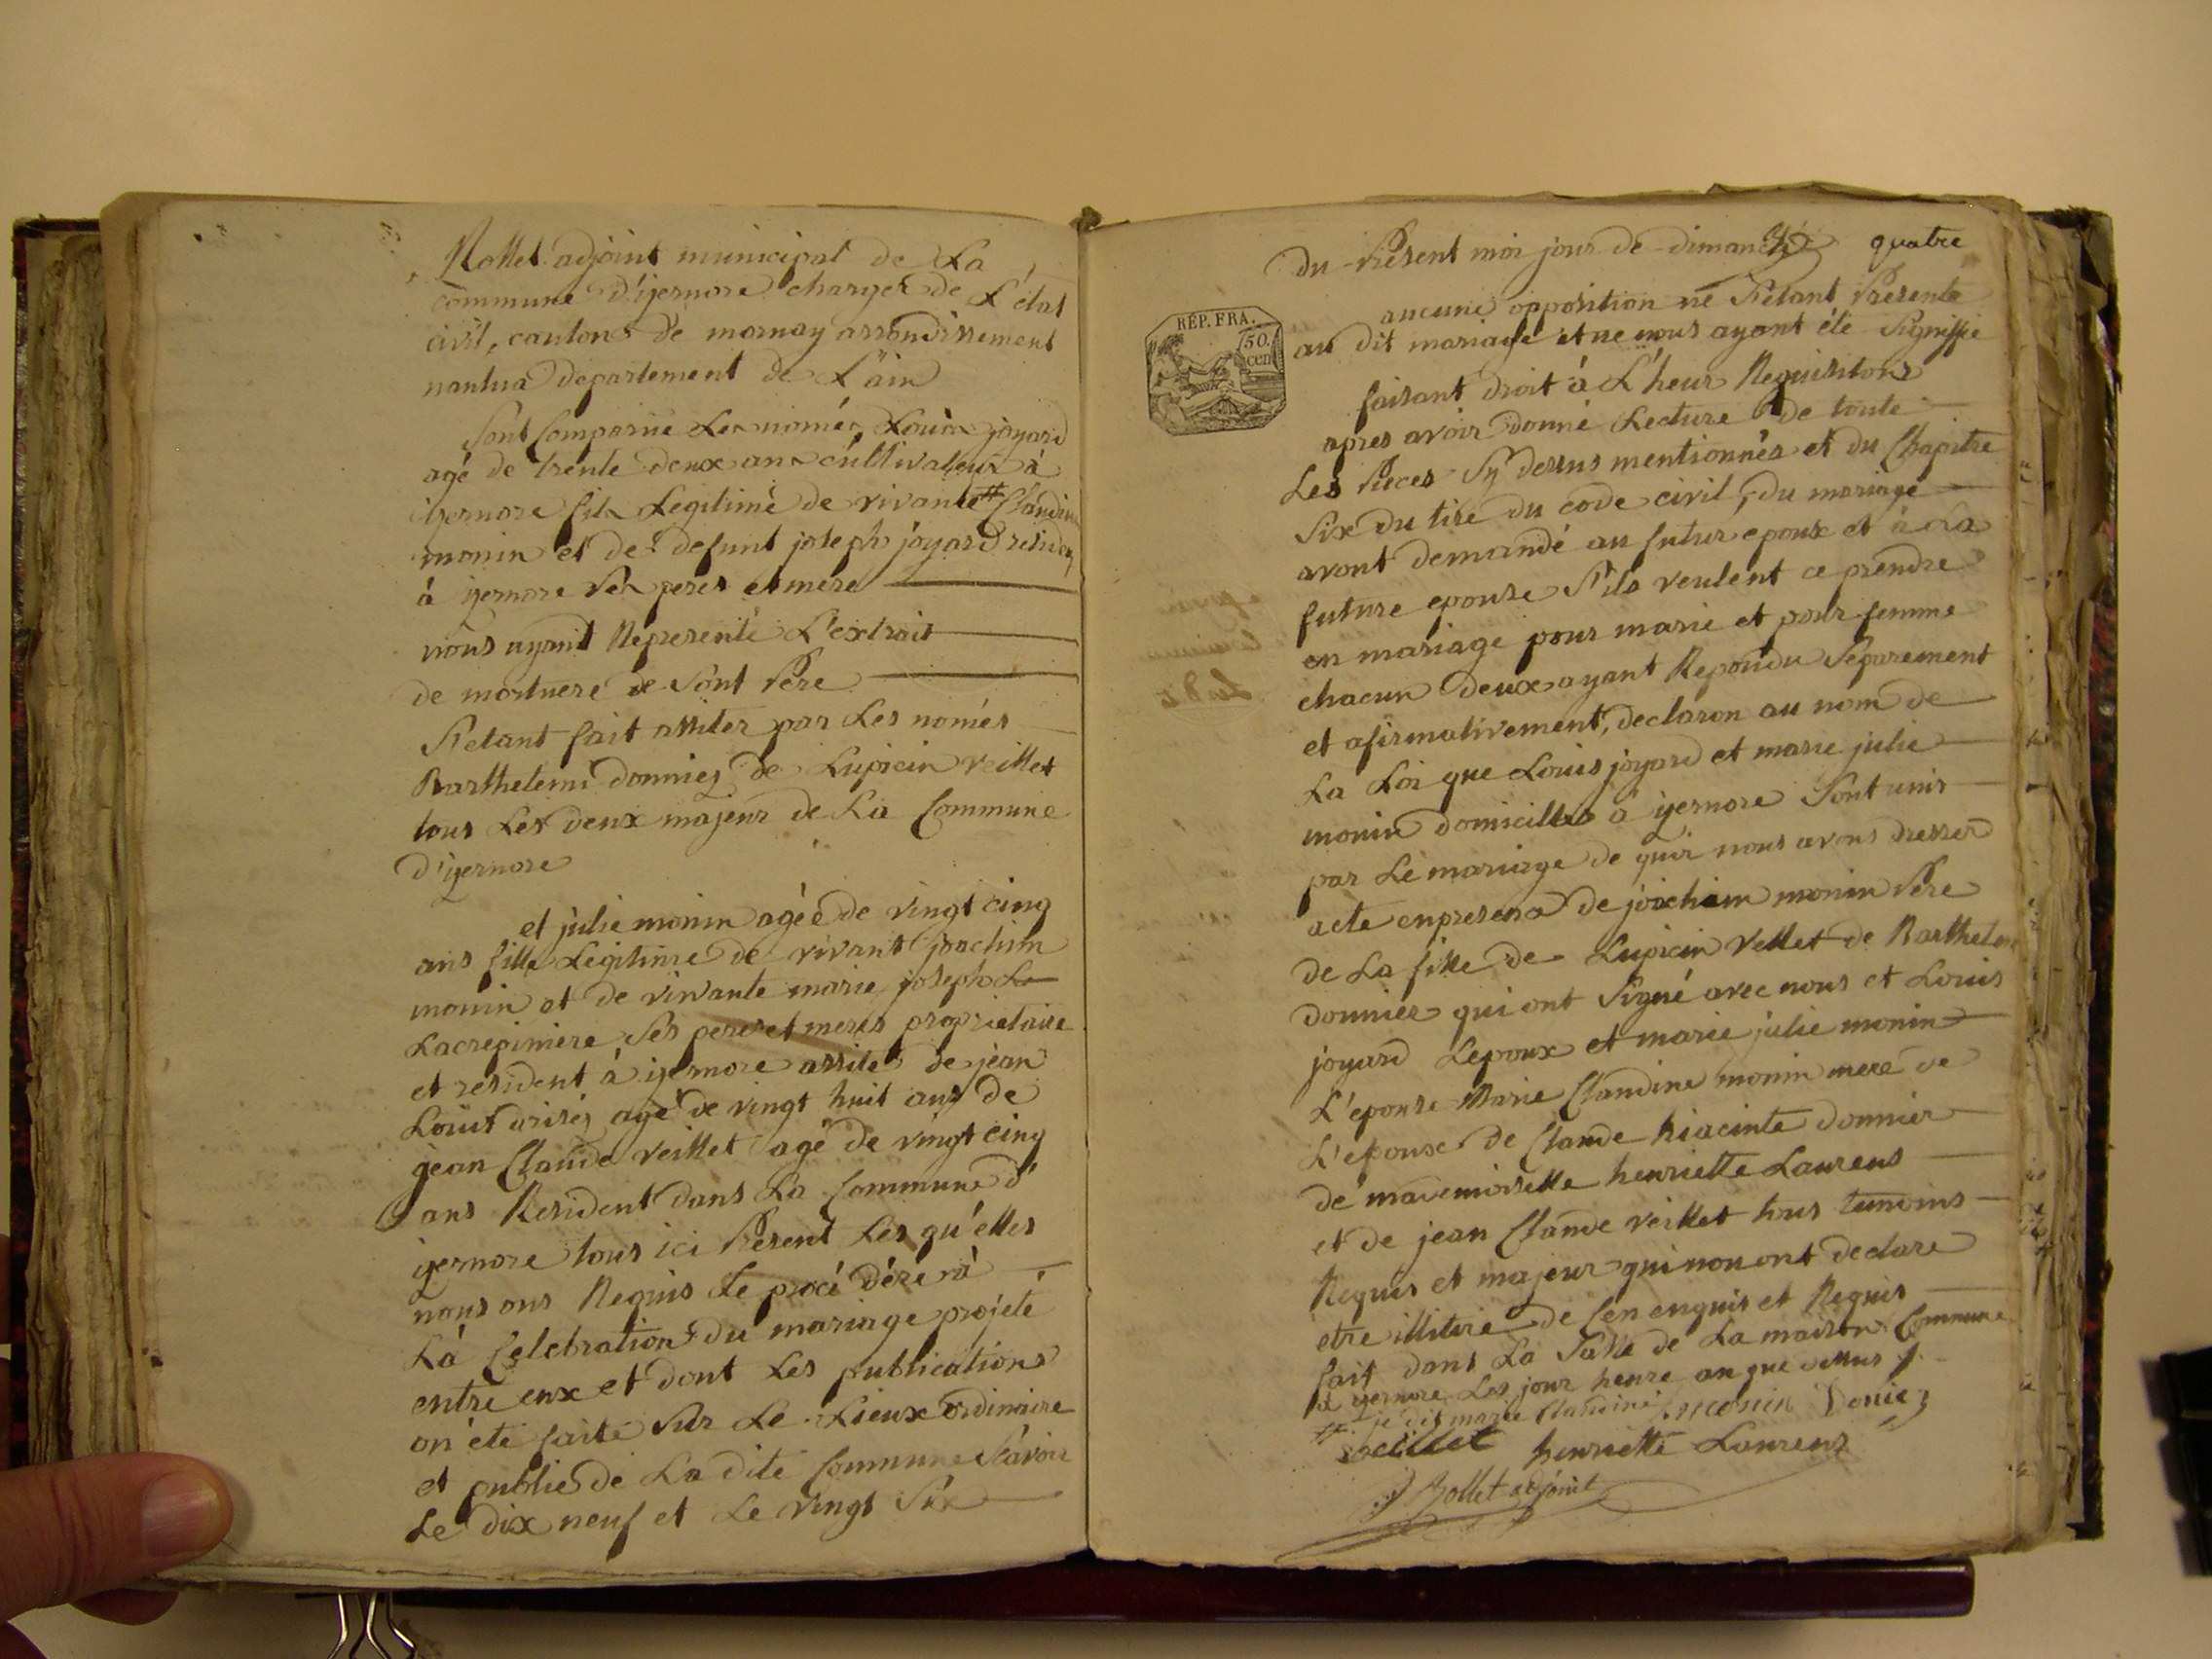 Rollet adjoint municipal de La
commune d'izernore charger de L'état
civil, canton de mornay arrondissement
nantua departement de L'ain
Sont Comparue Les només Louis joyard
agé de trente deux ans cultivateur à
izernore fils Legitime de vivante # Claudine
monin et de defunt joseph joyard residant
à izernore ses peres et mere
nous ayant Representé L'extrait
de mortuere de sont Pere
S'etant fait assiter par Les només
Barthelemi donniez de Lupicin veillet
tous Les deux majeur de La Commune
d'izernore
et julie monin agée de vingt cinq
ans fille Legitime de vivant joachim
monin et de vivante marie joseph La
Lacrepiniere ses peres et meres proprietaire
et resident à izernore assité de jean
Louis agé de vingt huit ans de
jean Claude veillet agé de vingt cinq
ans Resident dans La Commune d'
izernore tous ici Present Les qu'elles
nous ons Requis de procédére à
La Celebration du mariage projeté
entre eux et dont Les publications
on été faite sur Le Lieux ordinaire
et publie de La dite Commune Savoir
Le dix neuf et Le vingt Six
du Present moi jour de dimanche
quatre
RÉP. FRA.
50.
cent
aucune opposition ne S'etant Presente
au dit mariage et ne nous ayant été Signiffie
faisant droit à L'heur Requisitons
apres avoir donné Lecture de toute
Les Pieces Sy dessus mentionnés et du Chapitre
Six du tire du code civil, du mariage
avont demandé au futur epoux et à La
future epouse S'ils veulent ce prendre
en mariage pour marie et pour femme
chacun deux ayant Repondu Séparement
et afirmativement, declaron au nom de
La Loi que Louis joyard et marie julie
monin domicilles à izernore Sont unis
par Le mariage de quoi nous avons dresser
acte en presence de joachim monin Père
de La fille de Lupicin Vellet de Barthelemi
donnier qui ont Signé avec nous et Louis
joyard Lepoux et marie julie monin
L'epouse Marie Claudine monin mere de
L'epouse de Claude hiacinte donnier
de mademoiselle henriette Laurens
et de jean Claude veillet tous temoins
Requis et majeur qui nou ont declare
etre illitire de Cen enquis et Requis
fait dans La Salle de La maison Commune
d'izernore Les jour heure an que dessus
# je dis marie Claudine monin Doniez
veillet henriette Laurens
Rollet adjoint